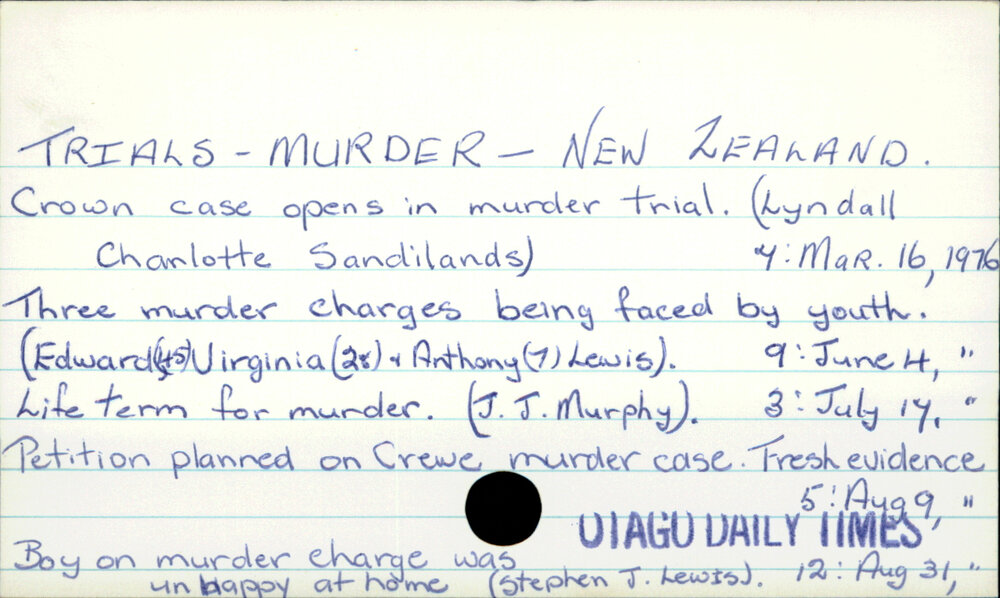 TRIALS - MURDER - NEW ZEALAND.
Crown case opens in murder trial. (Lyndall
Charlotte Sandilands) 4: MAR. 16, 1976
Three murder charges being faced by youth.
(Edward(45) Virginia (28) & Anthony (7) Lewis). 9: June 4, "
Life term for murder. (J. J. Murphy). 3: July 14, "
Petition planned on Crewe murder case. Fresh evidence
5: Aug 9, "
OTAGO DAILY TIMES
Boy on murder charge was
unhappy at home (Stephen J. Lewis). 12: Aug 31, "